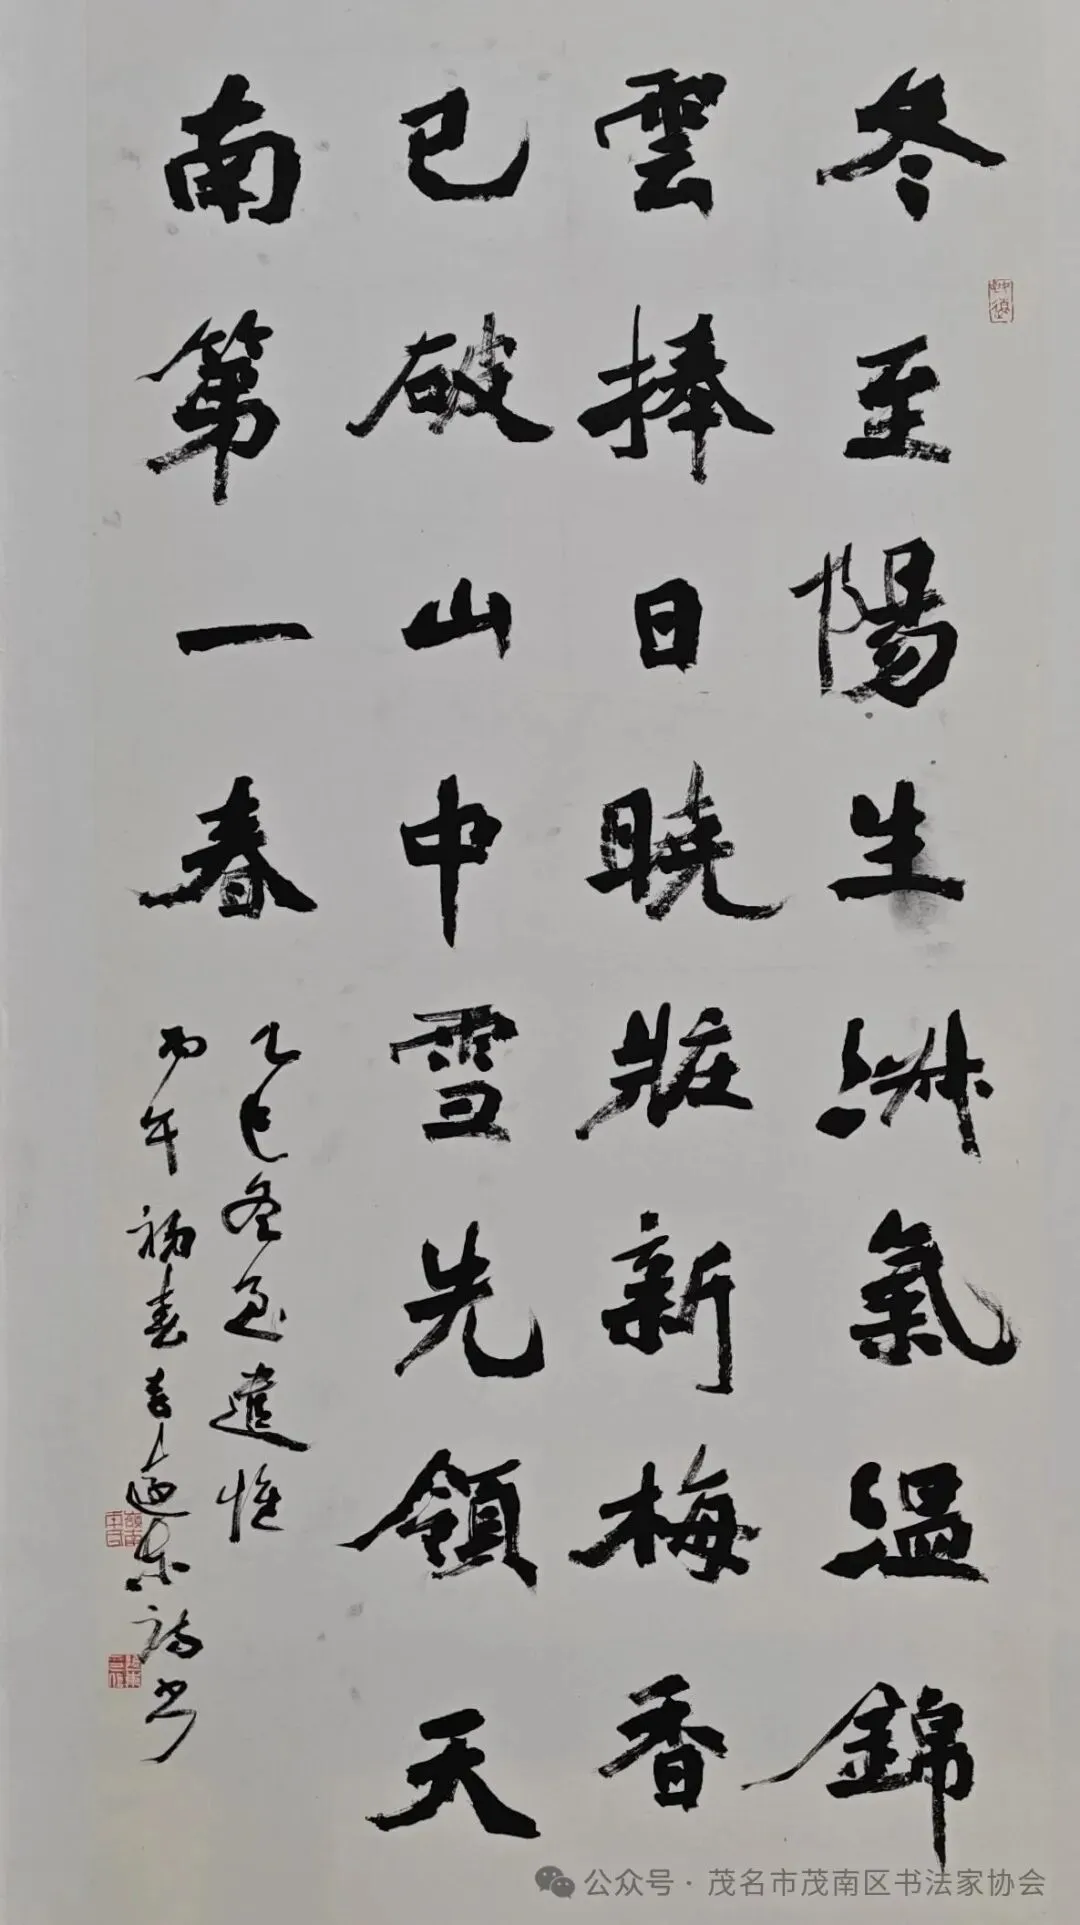 冬至陽生淑氣溫錦
雲捧日曉妝新梅香
已破山中雪先領天
南第一春
乙巳冬至遣懷
丙午初春吉逈東詩書
公众号 · 茂名市茂南区书法家协会